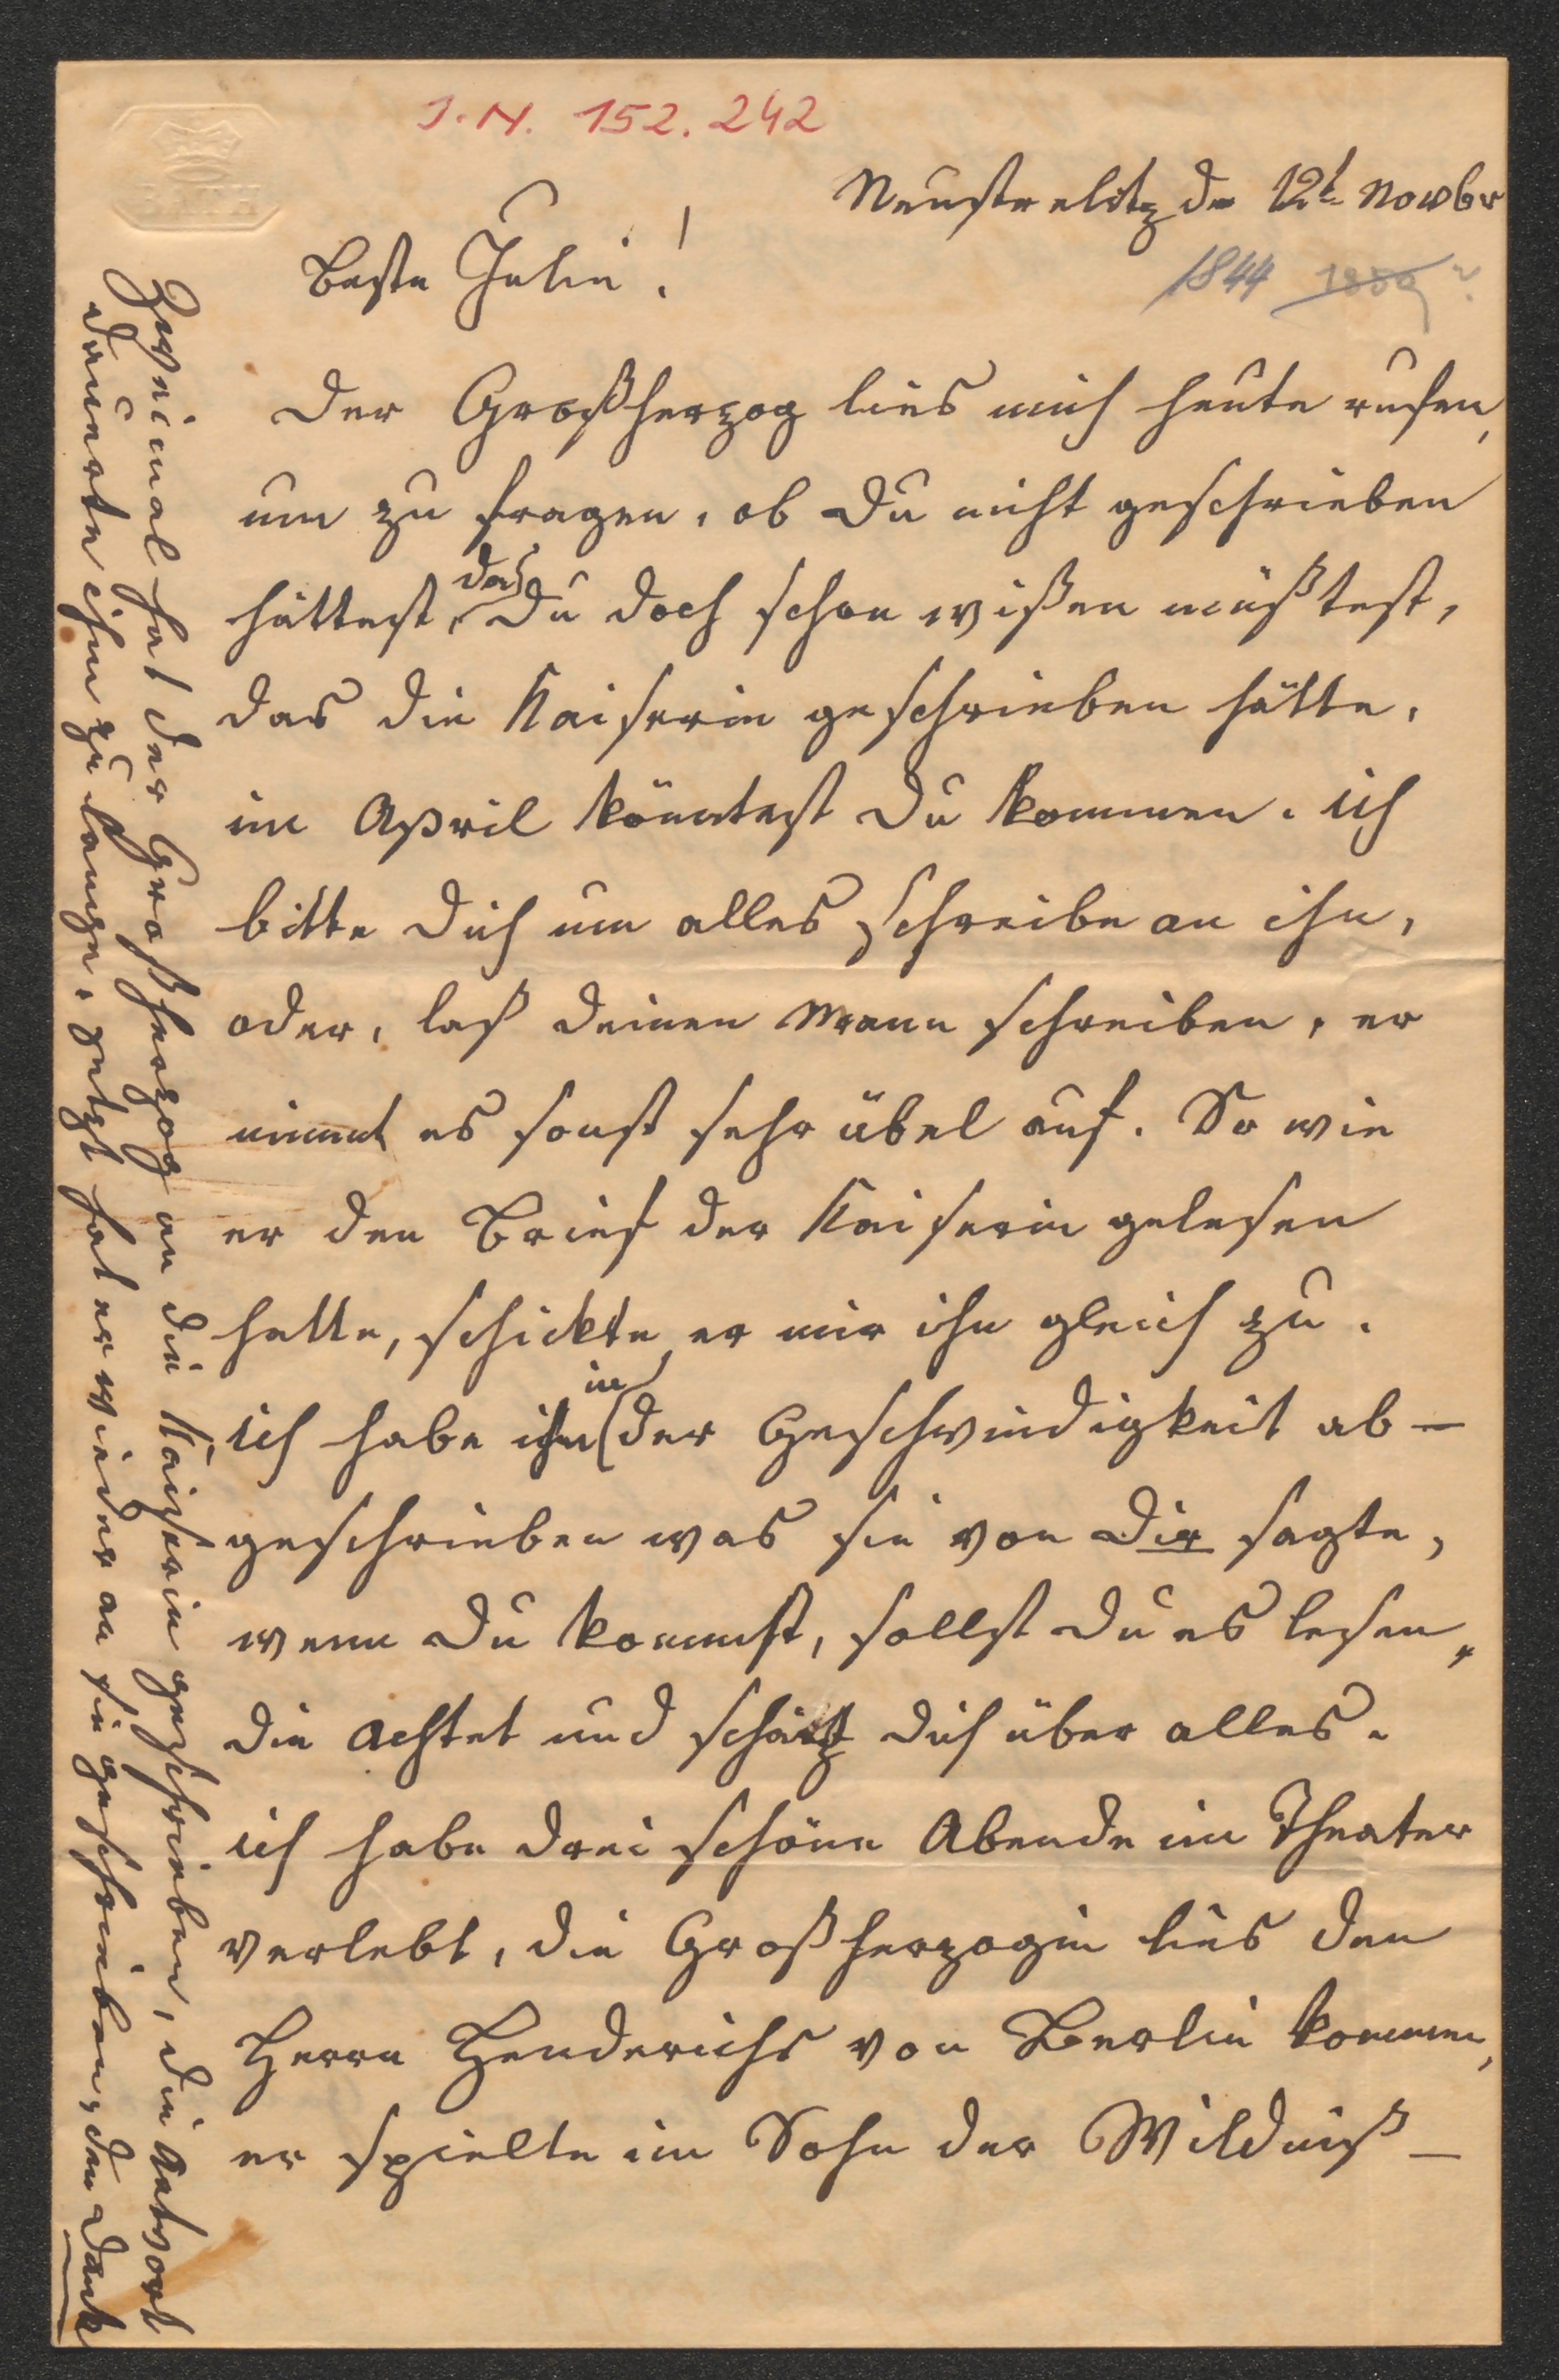 J.N. 152.242
Neustrelitz d 12t Novbr
1844 1889?
Beste Julie!
Der Großherzog lies mich heute rufen,
um zu fragen, ob Du nicht geschrieben
hättest, das Du doch schon wißen müßtest,
das die Kaiserin geschrieben hätte,
im April könntest Du kommen. ich
bitte Dich um alles schreibe an ihn,
oder, laß Deinen Mann schreiben, er
nimmt es sonst sehr übel auf. So wie
er den Brief der Kaiserin gelesen
hatte, schickte er mir ihn gleich zu.
ich habe ihn in der Geschwindigkeit ab-
geschrieben was sie von Dir sagte,
wenn Du kommst, sollst Du es lesen,
die achtet und schätz Dich über alles.
ich habe drei schöne Abende im Theater
verlebt, die Großherzogin lies den
Herrn Henderichs von Berlin kommen,
er spielte im Sohn der Wildniß-
Zweimal hat der Großherzog an die Kaiserin geschrieben, die Antwort
dauerte ihn zu lange, jetzt hat er wieder an sie geschrieben, den Dank